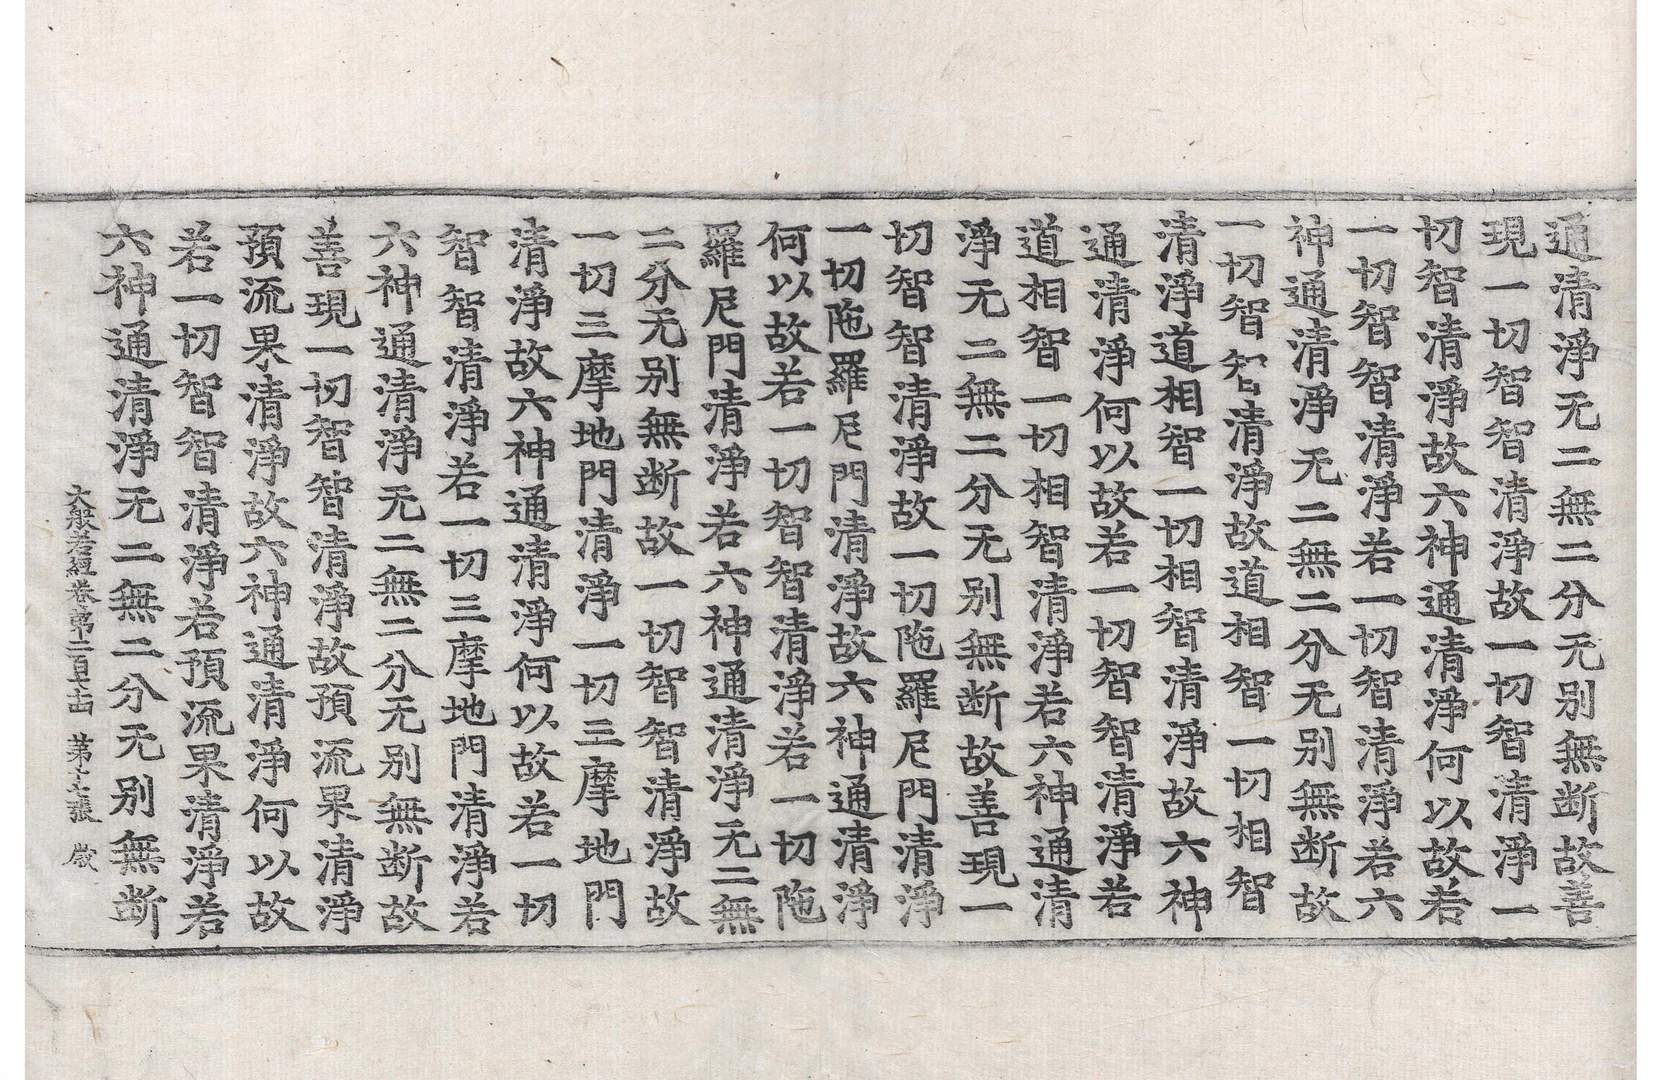 通清淨无二無二分无別無断故善
現一切智智清淨故一切智清淨一
切智清淨故六神通清淨何以故若
一切智智清淨若一切智清淨若六
神通清淨无二無二分无別無断故
一切智智清淨故道相智一切相智
清淨道相智一切相智清淨故六神
通清淨何以故若一切智智清淨若
道相智一切相智清淨若六神通清
淨无二無二分无別無断故善現一
切智智清淨故一切陁羅尼門清淨
一切陁羅尼門清淨故六神通清淨
何以故若一切智智清淨若一切陁
羅尼門清淨若六神通清淨无二無
二分无別無断故一切智智清淨故
一切三摩地門清淨一切三摩地門
清淨故六神通清淨何以故若一切
智智清淨若一切三摩地門清淨若
六神通清淨无二無二分无別無断故
善現一切智智清淨故預流果清淨
預流果清淨故六神通清淨何以故
若一切智智清淨若預流果清淨若
六神通清淨无二無二分无別無断
大般若経卷第二百 第 張